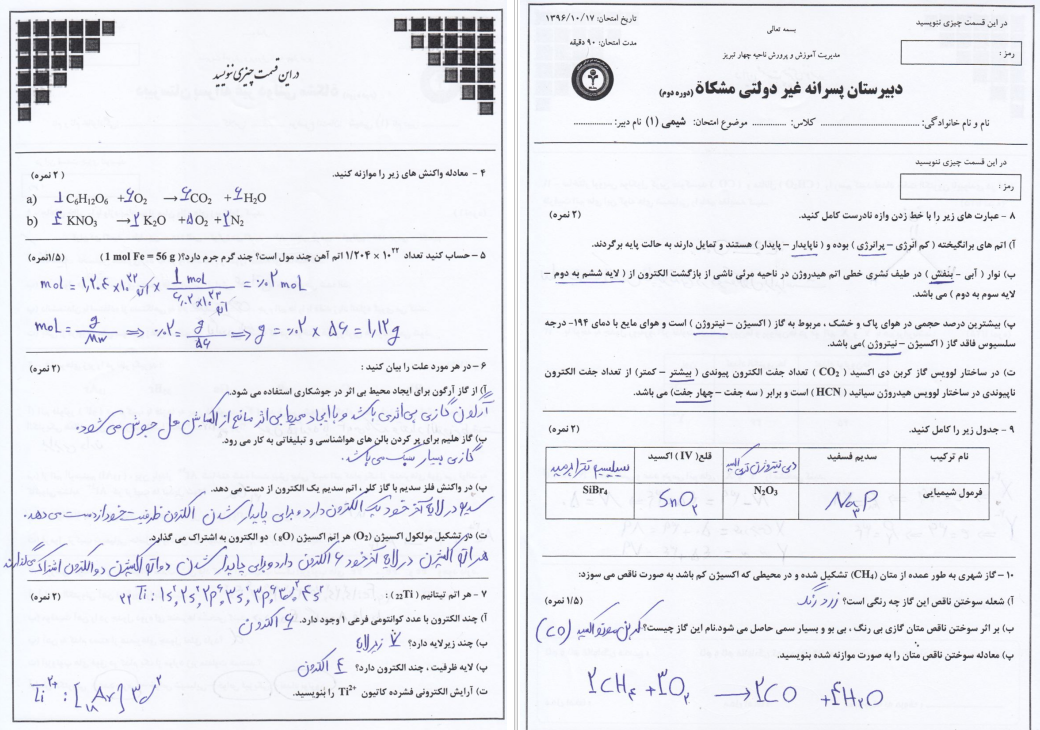 در این قسمت چیزی ننویسید
۴ - معادله واکنش های زیر را موازنه کنید. (۲ نمره)
a) 1 C6H12O6 + ۶ O2 → ۶ CO2 + ۶ H2O
b) ۴ KNO3 → ۲ K2O + ۵ O2 + ۲ N2
۵ - حساب کنید تعداد ۱/۲۰۴ × ۱۰^۲۲ اتم آهن چند مول است؟ چند گرم جرم دارد؟ (1 mol Fe = 56 g) (۱/۵نمره)
mol = ۱٫۲۰۴ × ۱۰^۲۲ اتم × 1 mol / ۶٫۰۲ × ۱۰^۲۳ اتم = ۰٫۰۲ mol
mol = g / Mw ⇒ ۰٫۰۲ = g / ۵۶ ⇒ g = ۰٫۰۲ × ۵۶ = ۱٫۱۲ g
۶ - در هر مورد علت را بیان کنید : (۲ نمره)
آ) از گاز آرگون برای ایجاد محیط بی اثر در جوشکاری استفاده می شود.
آرگون گازی بی اثری باشد و با ایجاد محیط بی اثر مانع از اکسایش محل جوش می شود.
ب) گاز هلیم برای پر کردن بالن های هواشناسی و تبلیغاتی به کار می رود.
گازی بسیار سبک می باشد.
پ) در واکنش فلز سدیم با گاز کلر، اتم سدیم یک الکترون از دست می دهد.
سدیم در لایه آخر خود یک الکترون دارد و برای پایدار شدن الکترون ظرفیت خود از دست می دهد.
ت) در تشکیل مولکول اکسیژن (O2) هر اتم اکسیژن (8O) دو الکترون به اشتراک می گذارد.
هر اتم اکسیژن در لایه آخر خود ۶ الکترون دارد و برای پایدار شدن دو اتم اکسیژن دو الکترون اشتراک می گذارند
۷ - هر اتم تیتانیم (22Ti) : ۲۲Ti : 1s² 2s² 2p⁶ 3s² 3p⁶ 3d² 4s² (۲ نمره)
آ) چند الکترون با عدد کوانتومی فرعی ۱ وجود دارد.
ب) چند زیرلایه دارد؟ ۷ زیرلایه
پ) لایه ظرفیت ، چند الکترون دارد؟ ۴ الکترون
ت) آرایش الکترونی فشرده کاتیون Ti2+ را بنویسید.
Ti²⁺ : [۱۸Ar] 3d²
در این قسمت چیزی ننویسید
رمز :
بسمه تعالی
مدیریت آموزش و پرورش ناحیه چهار تبریز
تاریخ امتحان: ۱۳۹۶/۱۰/۱۷
مدت امتحان: ۹۰ دقیقه
دبیرستان پسرانه غیر دولتی مشکاة (دوره دوم)
نام و نام خانوادگی: ........................ کلاس: ............. موضوع امتحان: شیمی (۱) نام دبیر: ................
در این قسمت چیزی ننویسید
رمز :
۸ - عبارت های زیر را با خط زدن واژه نادرست کامل کنید. (۲ نمره)
آ) اتم های برانگیخته ( کم انرژی – پرانرژی ) بوده و ( ناپایدار – پایدار ) هستند و تمایل دارند به حالت پایه برگردند.
ب) نوار ( آبی - بنفش ) در طیف نشری خطی اتم هیدروژن در ناحیه مرئی ناشی از بازگشت الکترون از ( لایه ششم به دوم –
لایه سوم به دوم ) می باشد.
پ) بیشترین درصد حجمی در هوای پاک و خشک ، مربوط به گاز ( اکسیژن – نیتروژن ) است و هوای مایع با دمای ۱۹۴- درجه
سلسیوس فاقد گاز ( اکسیژن – نیتروژن )می باشد.
ت) در ساختار لوویس گاز کربن دی اکسید ( CO2 ) تعداد جفت الکترون پیوندی ( بیشتر – کمتر) از تعداد جفت الکترون
ناپیوندی در ساختار لوویس هیدروژن سیانید ( HCN ) است و برابر ( سه جفت – چهار جفت) می باشد.
۹ - جدول زیر را کامل کنید. (۲ نمره)
نام ترکیب سدیم فسفید دی نیتروژن تری اکسید قلع( IV ) اکسید سیلیسیم تترا برمید
فرمول شیمیایی Na3P N2O3 SnO2 SiBr4
۱۰ - گاز شهری به طور عمده از متان (CH4) تشکیل شده و در محیطی که اکسیژن کم باشد به صورت ناقص می سوزد:
آ) شعله سوختن ناقص این گاز چه رنگی است؟ زرد رنگ (۱/۵ نمره)
ب) بر اثر سوختن ناقص متان گازی بی رنگ ، بی بو و بسیار سمی حاصل می شود.نام این گاز چیست؟ کربن مونو اکسید (CO)
پ) معادله سوختن ناقص متان را به صورت موازنه شده بنویسید.
۲CH۴ + ۳O۲ → ۲CO + ۴H۲O